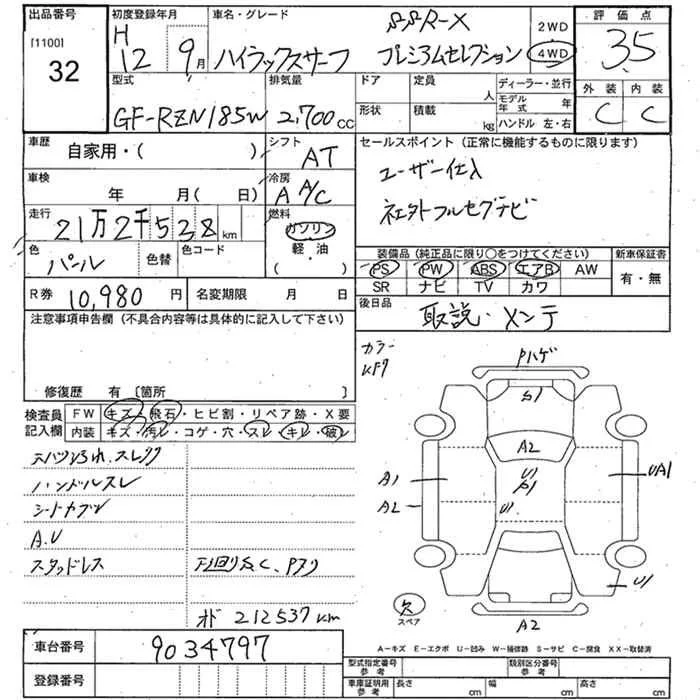 出品番号
[1100]
32
初度登録年月
H
12 9月
車名・グレード
SSR-X
ハイラックスサーフ プレミアムセレクション
2WD
4WD
評価点
3.5
外装 内装
C C
型式
GF-RZN185W
排気量
2,700cc
ドア
形状
定員
人
積載
kg
ディーラー・並行
モデル年式 年
ハンドル 左・右
車歴
自家用・( )
シフト
AT
車検
年 月( 日)
冷房
A A/C
走行
21万2千528km
燃料
ガソリン
軽・油
・
色
パール
色替
色コード
R券 10,980円
名変期限 月 日
セールスポイント(正常に機能するものに限ります)
ユーザー仕入
社外フルセグテビ
装備品(純正品に限り○をつけてください)
PS PW ABS エアB AW
SR ナビ TV カワ
新車保証書
有・無
後日品
取説・メンテ
注意事項申告欄(不具合内容等は具体的に記入して下さい)
修復歴 有〔箇所 〕
検査員記入欄
FW キズ・飛石・ヒビ割・リペア跡・X要
内装 キズ・汚レ・コゲ・穴・スレ・キレ・破レ
ハンドルスレ
A.U
スタッドレス
オド 212537km
カラー
Pハゲ
S1
A2
U1
S1
U1
A1
A2
UA1
U1
A2
欠
スペア
A-キズ E-エクボ U-凹み W-補修跡 S-サビ C-腐食 XX-取替済
車台番号
9034797
登録番号
型式指定番号
参考
類別区分番号
参考
車庫証明用
参考
長さ cm
幅 cm
高さ cm